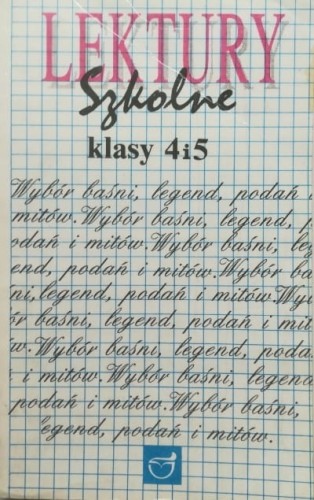 LEKTURY
Szkolne
klasy 4i5
Wybór baśni, legend, podań i
mitów.Wybór baśni, legend, p
odań i mitów.Wybór baśni, leg
end, podań i mitów.Wybór ba
ni,legend, podań i mitów.Wy
ór baśni, legend, podań i mit
w.Wybór baśni, legend, poda
i mitów.Wybór baśni, legend
podań i mitów.Wybór baśni,
egend, podań i mitów.